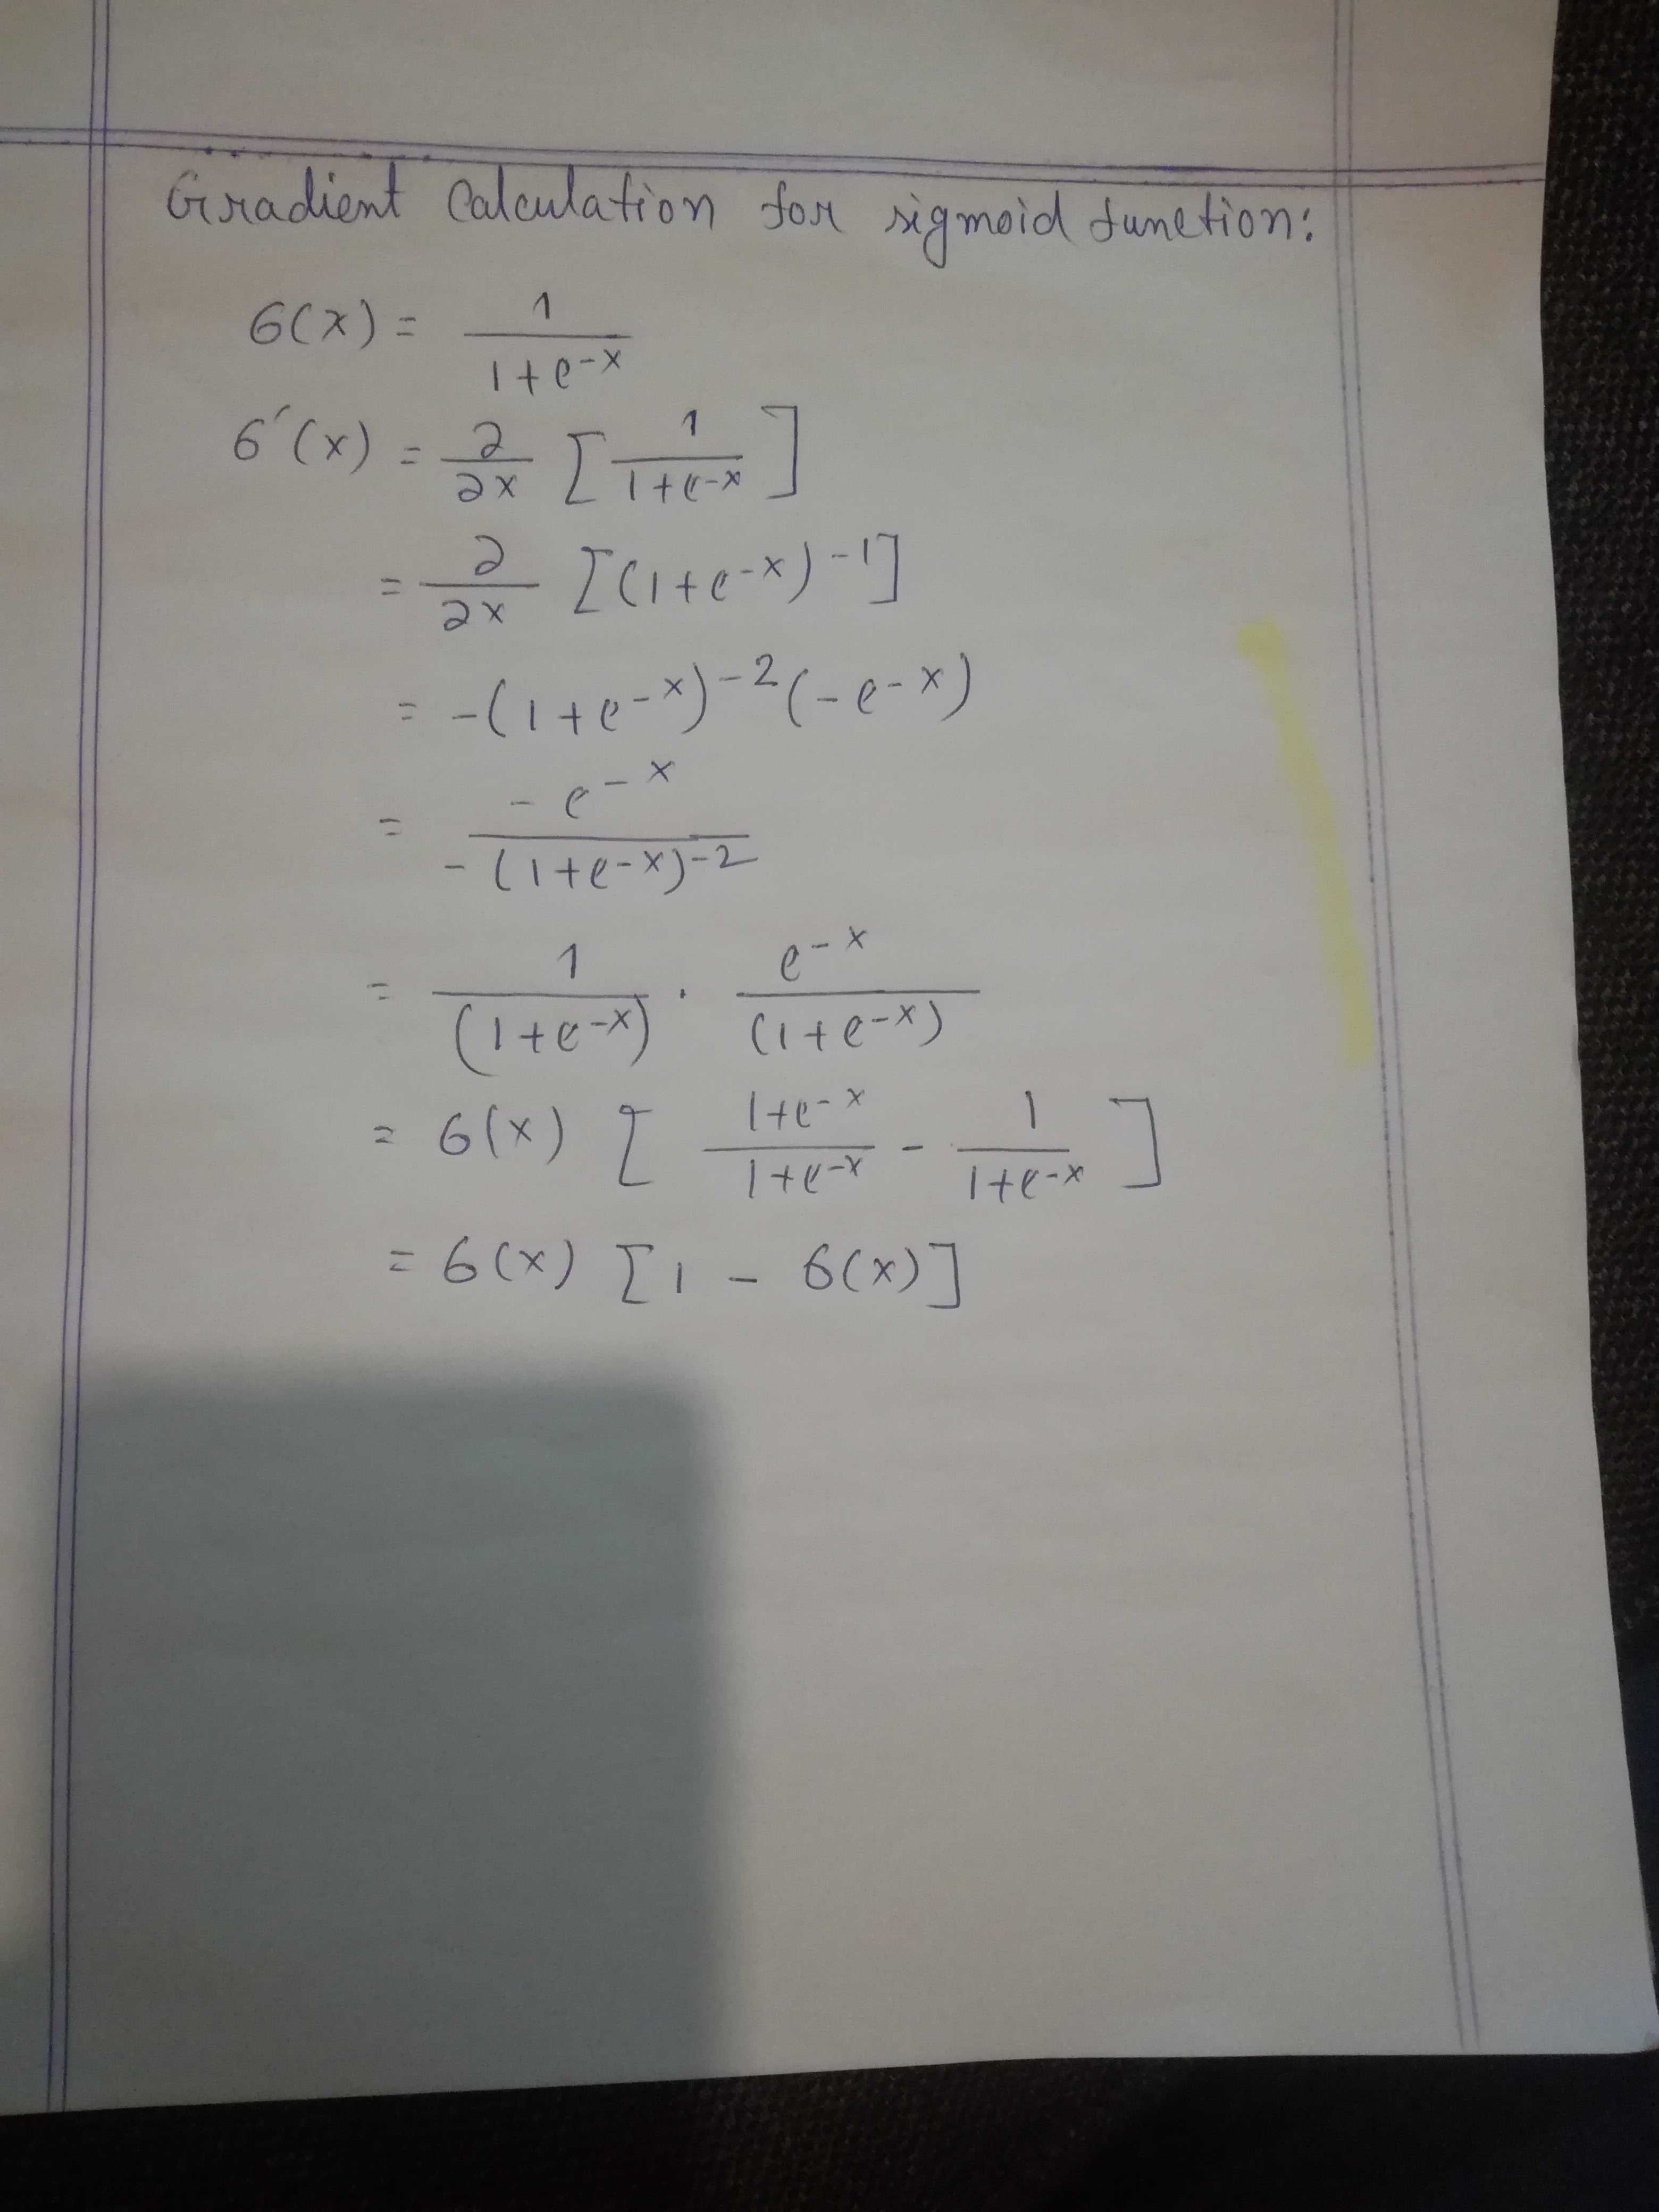 Gradient Calculation for sigmoid function:
σ(x) = 1 / (1+e^-x)
σ'(x) = ∂/∂x [1 / (1+e^-x)]
= ∂/∂x [(1+e^-x)^-1]
= -(1+e^-x)^-2 (-e^-x)
= -e^-x / -(1+e^-x)^-2
= 1 / (1+e^-x) · e^-x / (1+e^-x)
= σ(x) [(1+e^-x) / (1+e^-x) - 1 / (1+e^-x)]
= σ(x) [1 - σ(x)]